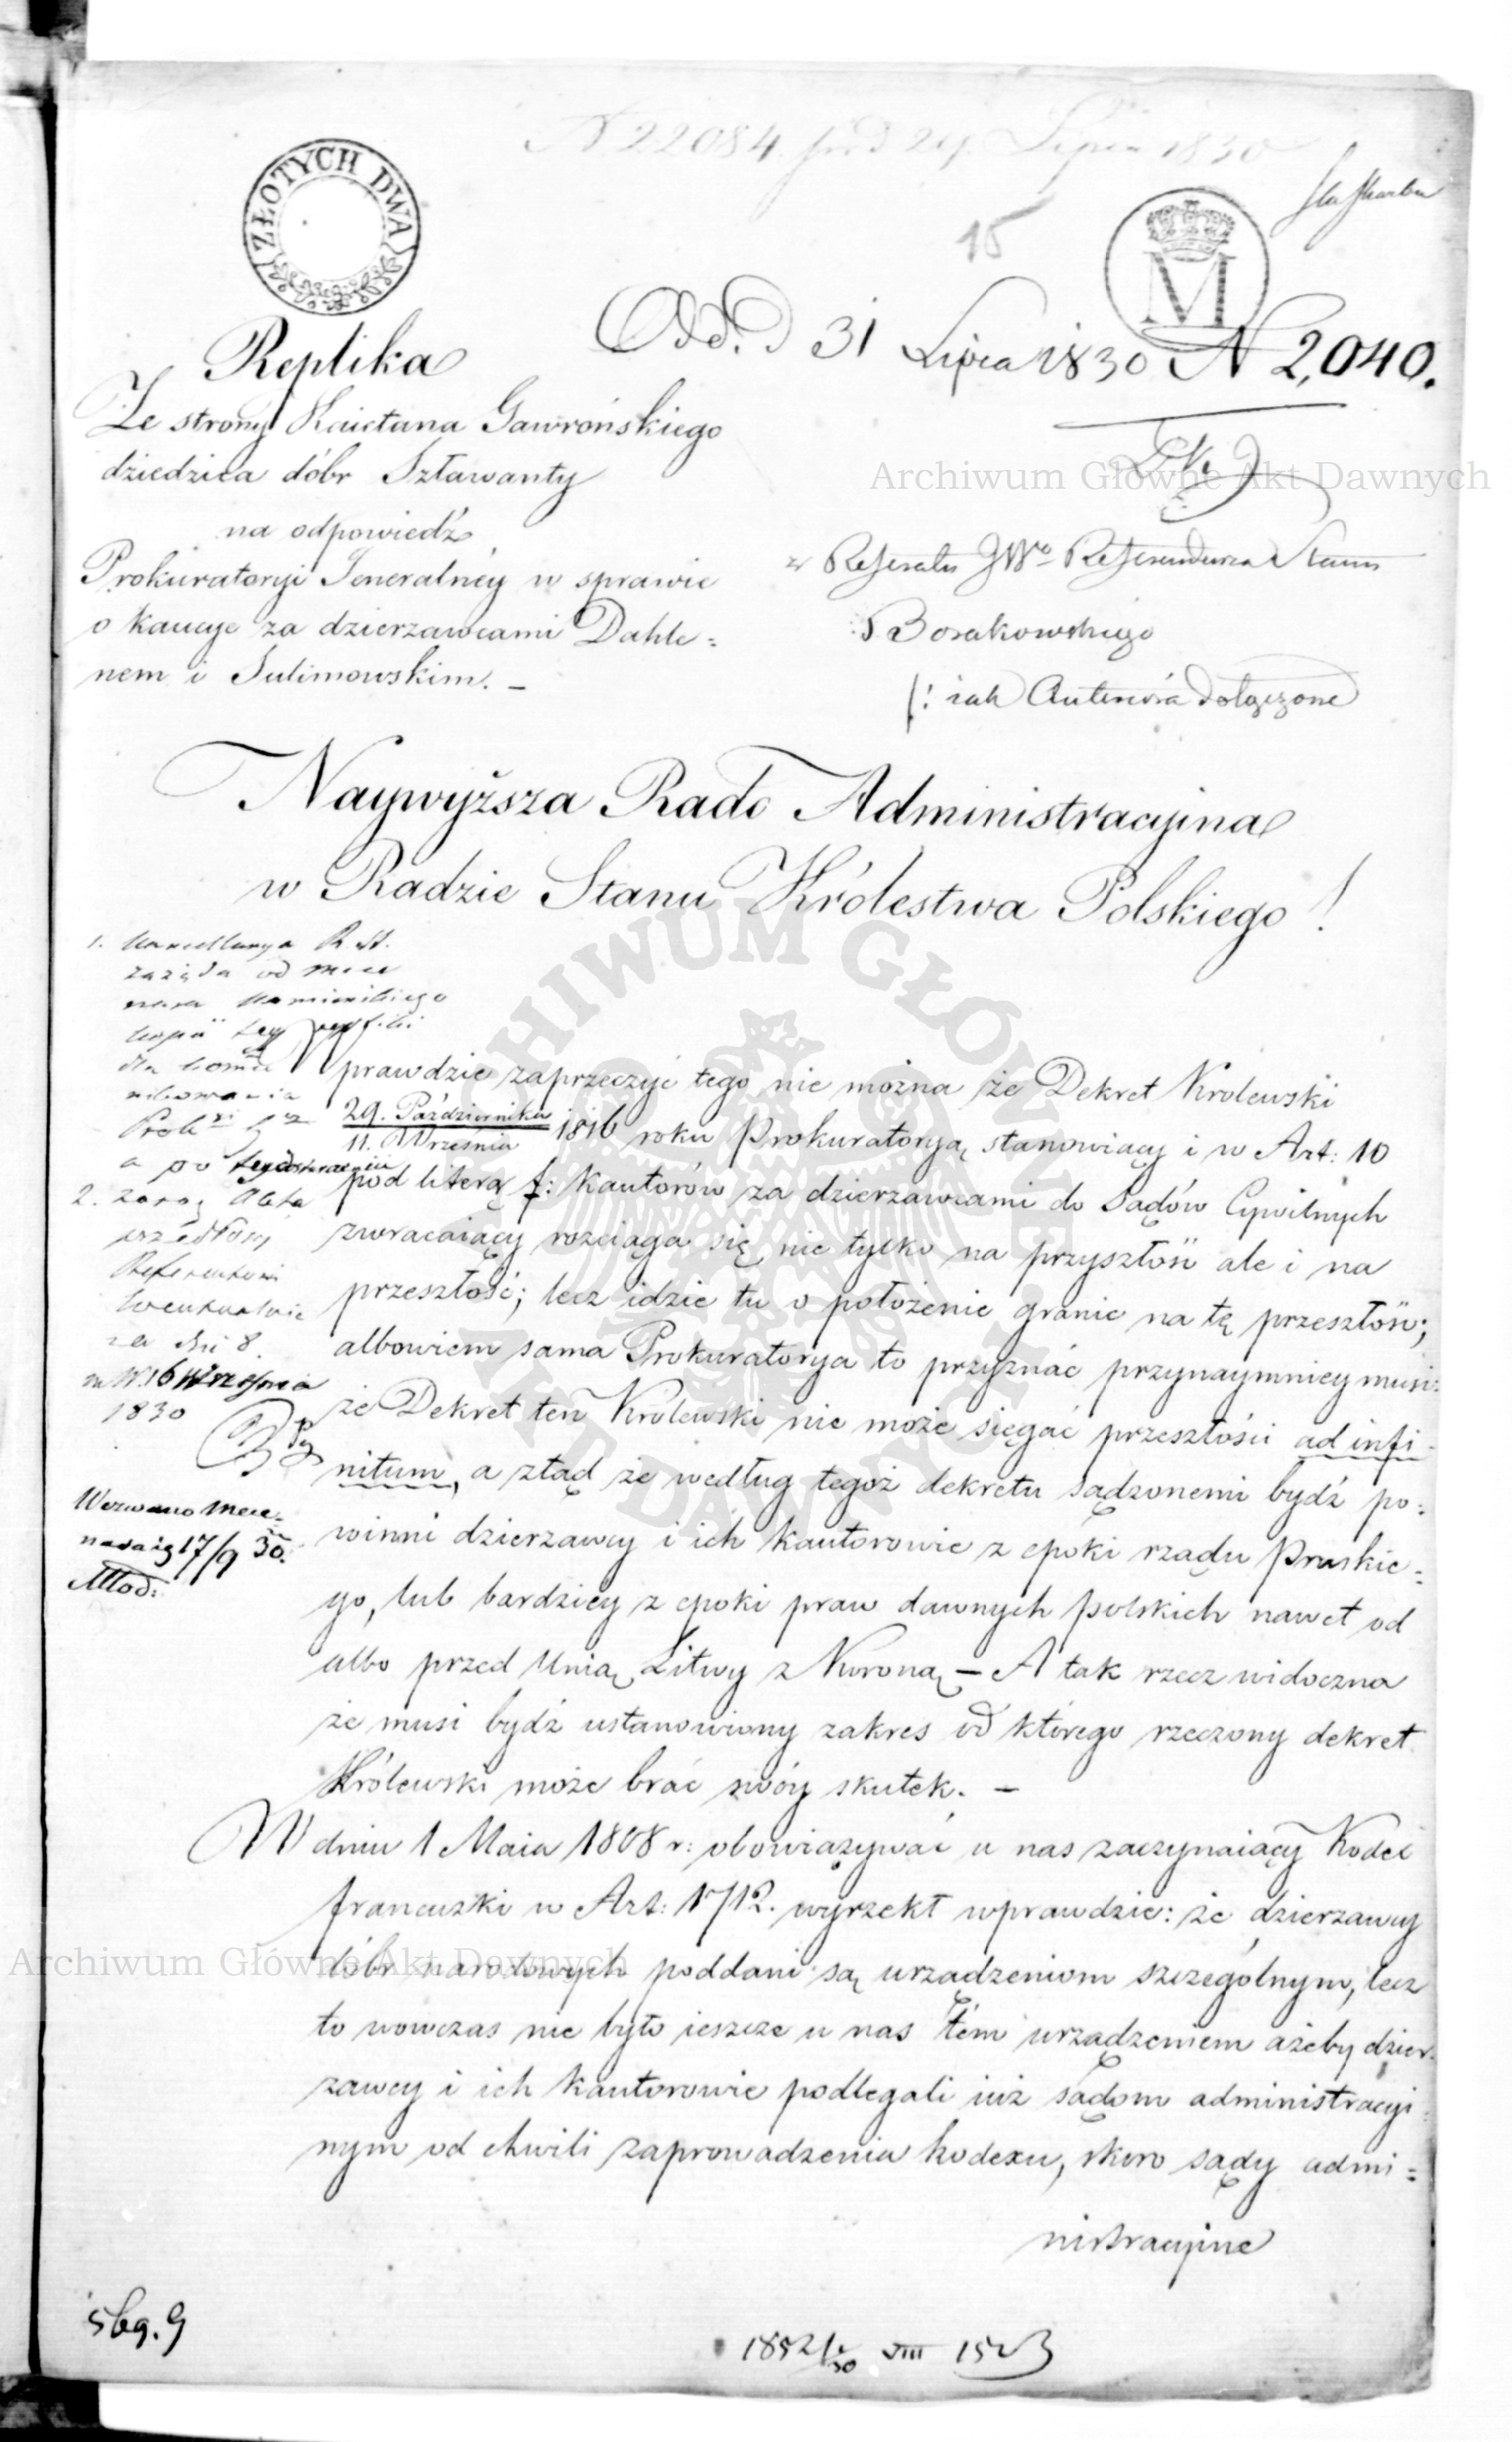 N 22084 29. Lipca 1830
ZŁOTYCH DWA
15
M
Odd. D 31 Lipca 1830 N 2,040.
Replika
Ze strony Kaietana Gawrońskiego
dziedzica dóbr Sztawanty
na odpowiedź
Prokuratoryi Jeneralnéy w sprawie
o kaucye za dzierzawcami Dahle=
nem i Sulimowskim. –
z Referatu JWo Referendarza Stanu
Borakowskiego
/: iak dołączone
Naywyższa Rado Administracyina
w Radzie Stanu Królestwa Polskiego!
1. Kancellarya R. St.
zażąda od Mece
nasa Kamieńskiego
kopii tey repliki
dla
a po
2. zaraz Akta
Referentowi
za dni 8.
w W. 16 Września
1830
Wezwano Mece=
nasa 17/9 30.
Młod:
Wprawdzie zaprzeczyć tego nie można że Dekret Krolewski
29. Października
11. Września 1816 roku Prokuratoryą stanowiący i w Art: 10
pod literą f: kautorów za dzierzawcami do Sądów Cywilnych
zwracaiący rozciąga się nie tylko na przyszłość ale i na
przeszłość; lecz idzie tu o położenie granic na tę przeszłość;
albowiem sama Prokuratorya to przyznać przynaymniey musi:
że Dekret ten Królewski nie może sięgać przeszłości ad infi=
nitum, a ztąd że według tegoż dekretu sądzonemi bydź po=
winni dzierzawcy i ich kautorowie z epoki rządu Pruskie=
go, lub bardziey z epoki praw dawnych polskich nawet od
albo przed Unią Litwy z Koroną – A tak rzecz widoczna
że musi bydź ustanowiony zakres od którego rzeczony dekret
Królewski może brać swóy skutek. –
W dniu 1 Maia 1808 r: obowiązywać u nas zaczynaiący Kodex
francuzki w Art: 1712. wyrzekł wprawdzie: że dzierzawy
dóbr narodowych poddani są urządzeniom szczególnym, lecz
to wowczas nie było ieszcze u nas tém urządzeniem ażeby dzier=
zawcy i ich kautorowie podlegali iuż sądom administracyi=
nym od chwili zaprowadzenia kodexu, skoro sądy admi=
nistracyine
sbg. 9
1852 VIII
Archiwum Główne Akt Dawnych
Archiwum Główne Akt Dawnych
ARCHIWUM GŁÓWNE AKT DAWNYCH